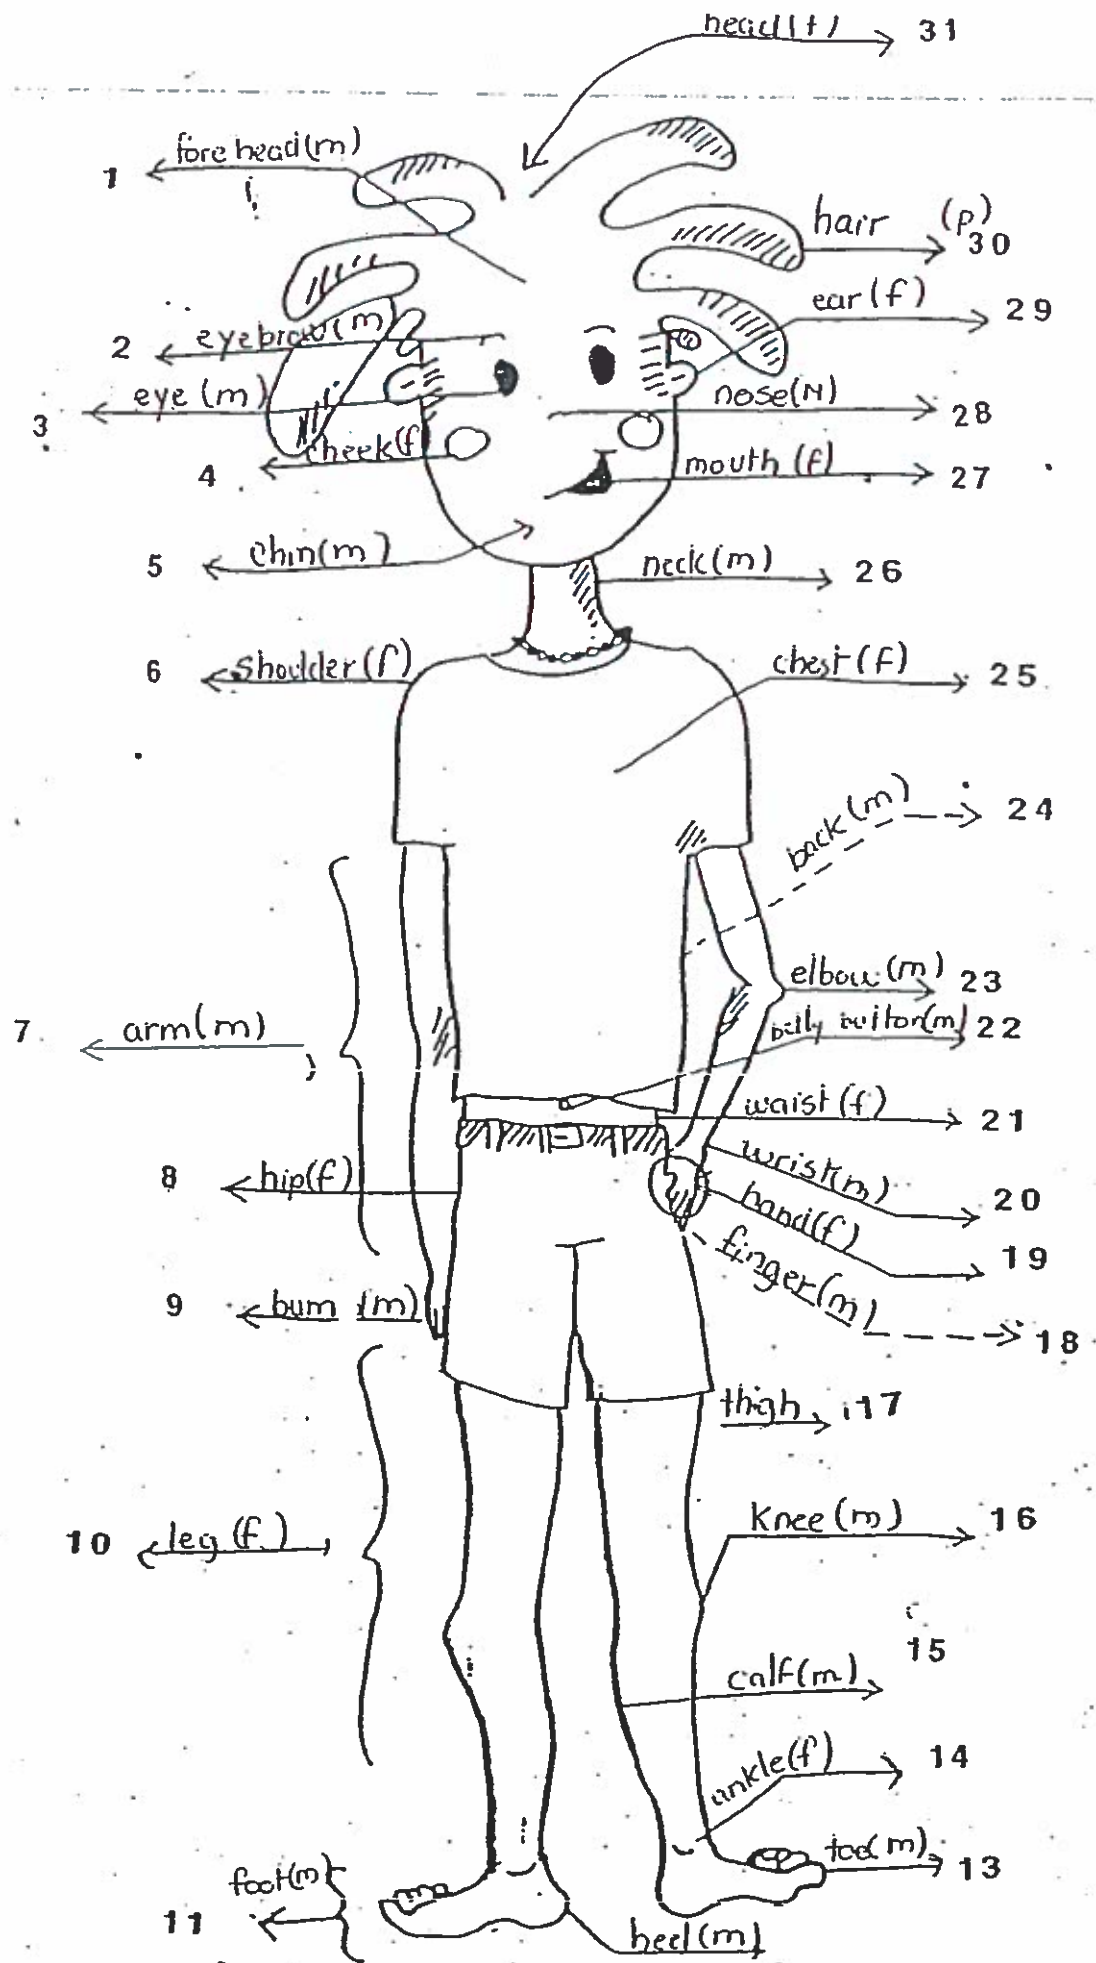 head(f) 31
1 fore head(m)
hair (p) 30
ear(f) 29
2 eyebrow(m)
3 eye (m)
nose(N) 28
4 cheek(f)
mouth (f) 27
5 chin(m)
neck(m) 26
6 shoulder(f)
chest(F) 25
back(m) 24
elbow(m) 23
7 arm(m)
belly button(m) 22
waist(f) 21
8 hip(f)
wrist(m) 20
hand(f) 19
9 bum (m)
finger(m) 18
thigh 17
10 leg (f)
Knee (m) 16
15
calf(m)
ankle(f) 14
toe(m) 13
foot(m)
11
heel(m)